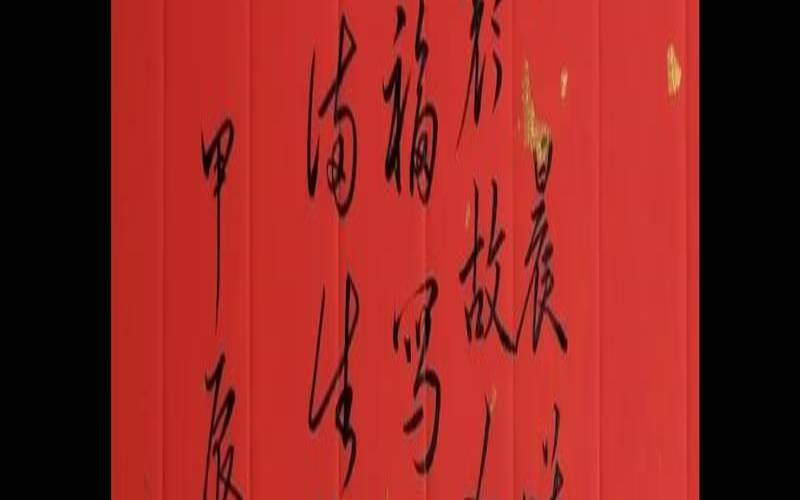 晨
故
福写
满生
甲辰